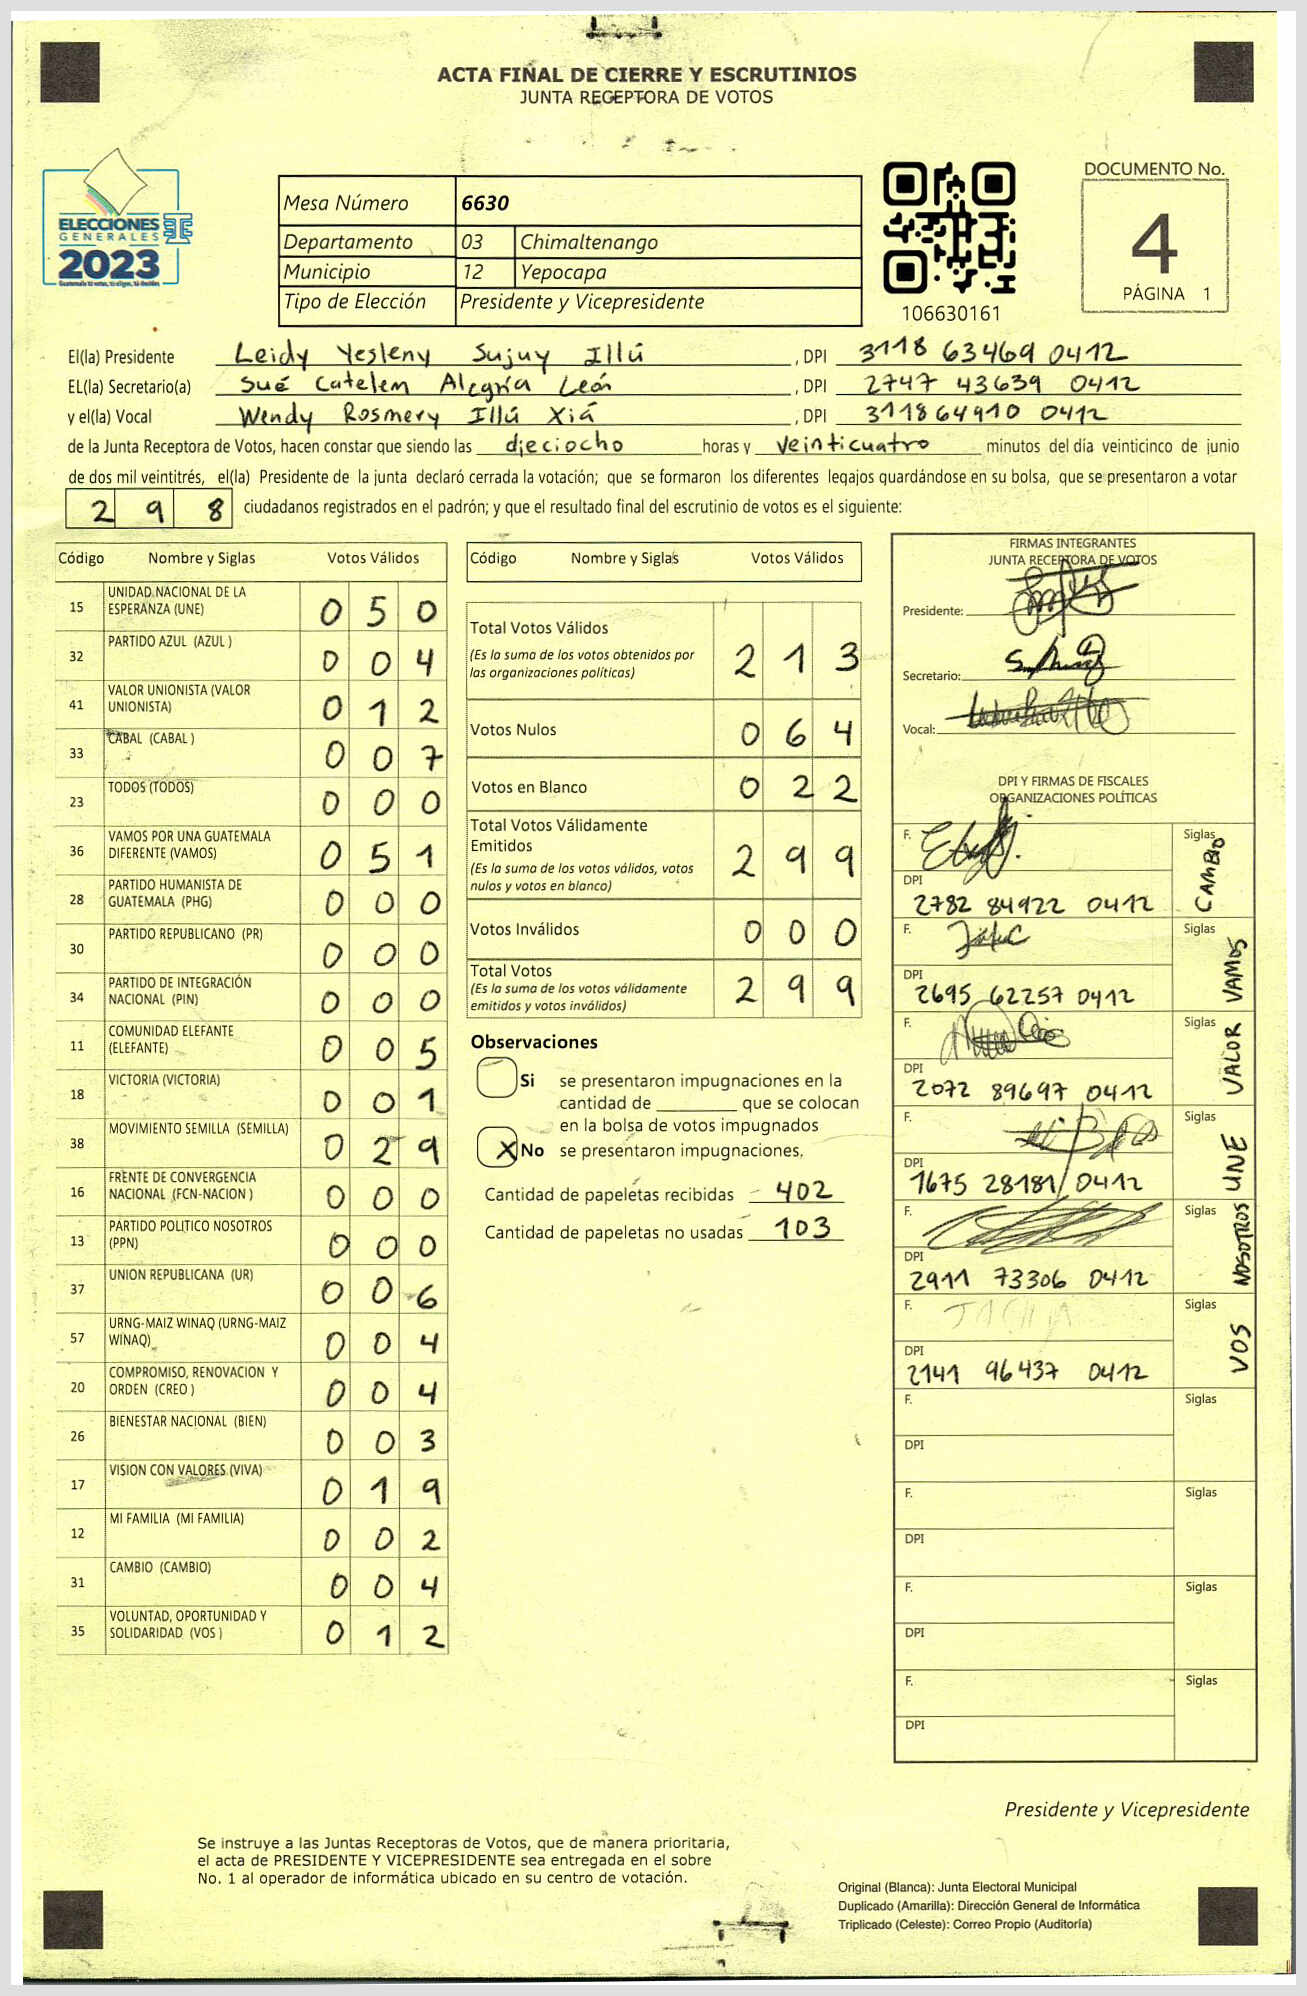 ACTA FINAL DE CIERRE Y ESCRUTINIOS
JUNTA RECEPTORA DE VOTOS
ELECCIONES
GENERALES
2023
Mesa Número 6630
Departamento 03 Chimaltenango
Municipio 12 Yepocapa
Tipo de Elección Presidente y Vicepresidente
106630161
DOCUMENTO No.
4
PÁGINA 1
El(la) Presidente Leidy Yesleny Sujuy Illú , DPI 3118 63469 0412
EL(la) Secretario(a) Sué Catelem Alegría León , DPI 2747 43639 0412
y el(la) Vocal Wendy Rosmery Illú Xiá , DPI 311864910 0412
de la Junta Receptora de Votos, hacen constar que siendo las dieciocho horas y veinticuatro minutos del día veinticinco de junio
de dos mil veintitrés, el(la) Presidente de la junta declaró cerrada la votación; que se formaron los diferentes legajos guardándose en su bolsa, que se presentaron a votar
298 ciudadanos registrados en el padrón; y que el resultado final del escrutinio de votos es el siguiente:
Código Nombre y Siglas Votos Válidos
15 UNIDAD NACIONAL DE LA
ESPERANZA (UNE) 0 5 0
32 PARTIDO AZUL (AZUL ) 0 0 4
41 VALOR UNIONISTA (VALOR
UNIONISTA) 0 1 2
33 CABAL (CABAL ) 0 0 7
23 TODOS (TODOS) 0 0 0
36 VAMOS POR UNA GUATEMALA
DIFERENTE (VAMOS) 0 5 1
28 PARTIDO HUMANISTA DE
GUATEMALA (PHG) 0 0 0
30 PARTIDO REPUBLICANO (PR) 0 0 0
34 PARTIDO DE INTEGRACIÓN
NACIONAL (PIN) 0 0 0
11 COMUNIDAD ELEFANTE
(ELEFANTE) 0 0 5
18 VICTORIA (VICTORIA) 0 0 1
38 MOVIMIENTO SEMILLA (SEMILLA) 0 2 9
16 FRENTE DE CONVERGENCIA
NACIONAL (FCN-NACION ) 0 0 0
13 PARTIDO POLITICO NOSOTROS
(PPN) 0 0 0
37 UNION REPUBLICANA (UR) 0 0 6
57 URNG-MAIZ WINAQ (URNG-MAIZ
WINAQ) 0 0 4
20 COMPROMISO, RENOVACION Y
ORDEN (CREO ) 0 0 4
26 BIENESTAR NACIONAL (BIEN) 0 0 3
17 VISION CON VALORES (VIVA) 0 1 9
12 MI FAMILIA (MI FAMILIA) 0 0 2
31 CAMBIO (CAMBIO) 0 0 4
35 VOLUNTAD, OPORTUNIDAD Y
SOLIDARIDAD (VOS ) 0 1 2
Código Nombre y Siglas Votos Válidos
Total Votos Válidos 2 1 3
(Es la suma de los votos obtenidos por
las organizaciones políticas)
Votos Nulos 0 6 4
Votos en Blanco 0 2 2
Total Votos Válidamente
Emitidos 2 9 9
(Es la suma de los votos válidos, votos
nulos y votos en blanco)
Votos Inválidos 0 0 0
Total Votos 2 9 9
(Es la suma de los votos válidamente
emitidos y votos inválidos)
Observaciones
Si se presentaron impugnaciones en la
cantidad de ________ que se colocan
en la bolsa de votos impugnados
X No se presentaron impugnaciones.
Cantidad de papeletas recibidas 402
Cantidad de papeletas no usadas 103
FIRMAS INTEGRANTES
JUNTA RECEPTORA DE VOTOS
Presidente:
Secretario:
Vocal:
DPI Y FIRMAS DE FISCALES
ORGANIZACIONES POLÍTICAS
F. Siglas CAMBIO
DPI
2782 84922 0412
F. Siglas VAMOS
DPI
2695 62257 0412
F. Siglas VALOR
DPI
2072 89697 0412
F. Siglas UNE
DPI
1675 28181 0412
F. Siglas NOSOTROS
DPI
2911 73306 0412
F. Siglas VOS
DPI
2141 96437 0412
F. Siglas
DPI
F. Siglas
DPI
F. Siglas
DPI
F. Siglas
DPI
Presidente y Vicepresidente
Se instruye a las Juntas Receptoras de Votos, que de manera prioritaria,
el acta de PRESIDENTE Y VICEPRESIDENTE sea entregada en el sobre
No. 1 al operador de informática ubicado en su centro de votación.
Original (Blanca): Junta Electoral Municipal
Duplicado (Amarilla): Dirección General de Informática
Triplicado (Celeste): Correo Propio (Auditoría)